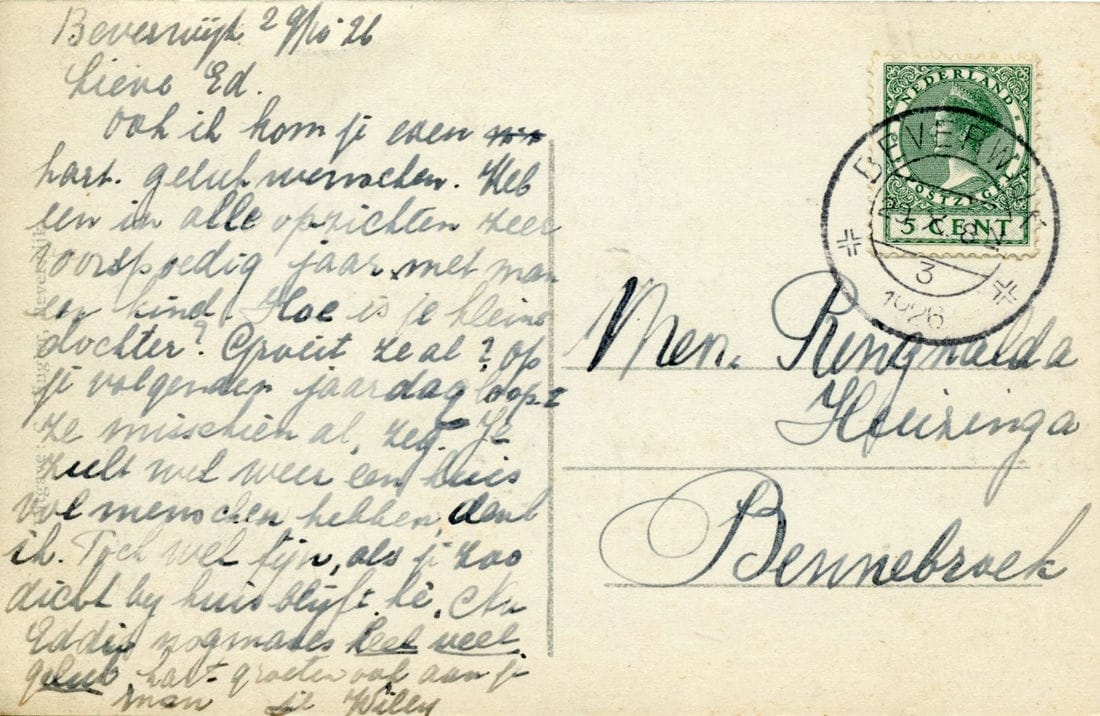 Beverwijk 29/10 26
Lieve Ed.
Ook ik kom je even
hart. geluk wenschen. Heb
een in alle opzichten zeer
voorspoedig jaar, met man
en kind. Hoe is je kleine
dochter? Groeit ze al? op
je volgenden jaardag loopt
ze misschien al, zeg. Je
zult wel weer een huis
vol menschen hebben, denk
ik. Toch wel fijn, als je zoo
dicht by huis blyft, hè. Nu
Eddie nogmaals heel veel
geluk, hart groeten ook aan je
man je Willy
NEDERLAND
POSTZEGEL
5 CENT
BEVERWIJK
29.X. 8
3
1926
Mev. Ringnalda
Heuzinga
Bennebroek
Uitgave: Beverwijk